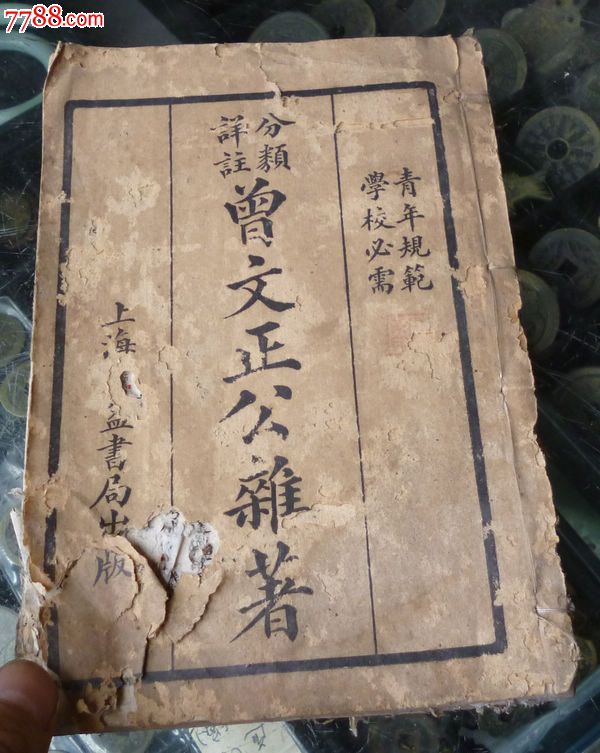 7788.com
中国收藏热线
青年規範
學校必需
分類
詳註
曾文正公雜著
上海 益書局出版